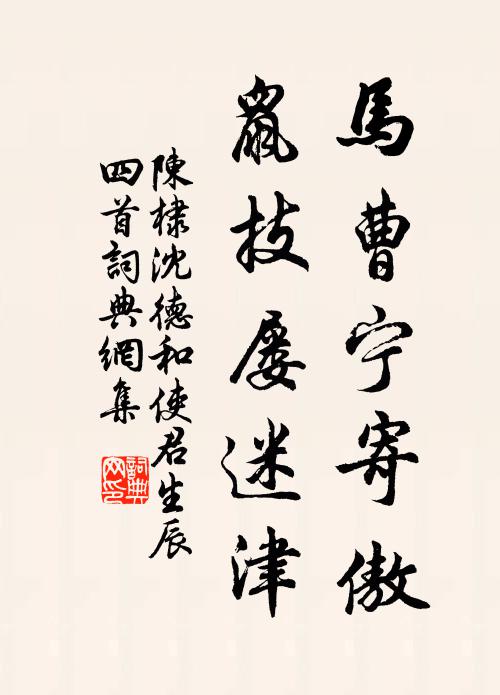 馬曹宁寄傲
鼠技屡迷津
陳棣沈德和使君生辰
四首詞典網集
詞典
网印